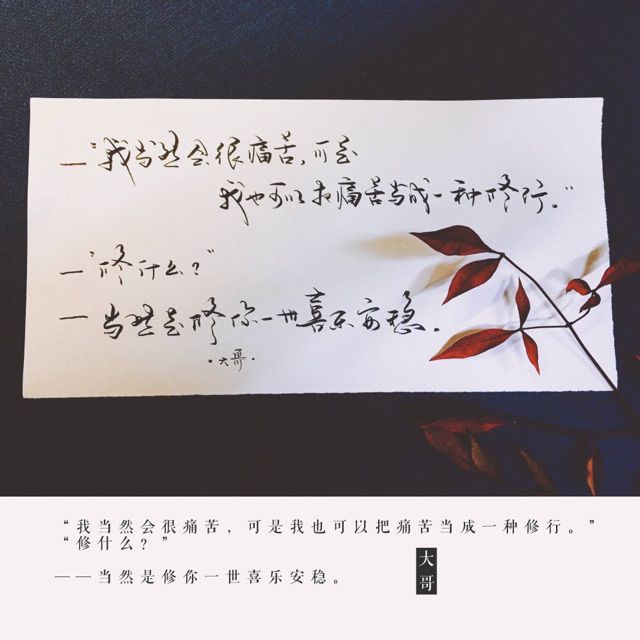 —“我当然会很痛苦，可是
我也可以把痛苦当成一种修行。”
—“修什么？”
— 当然是修你一世喜乐安稳。
·大哥·
“我当然会很痛苦，可是我也可以把痛苦当成一种修行。”
“修什么？”
——当然是修你一世喜乐安稳。
大哥